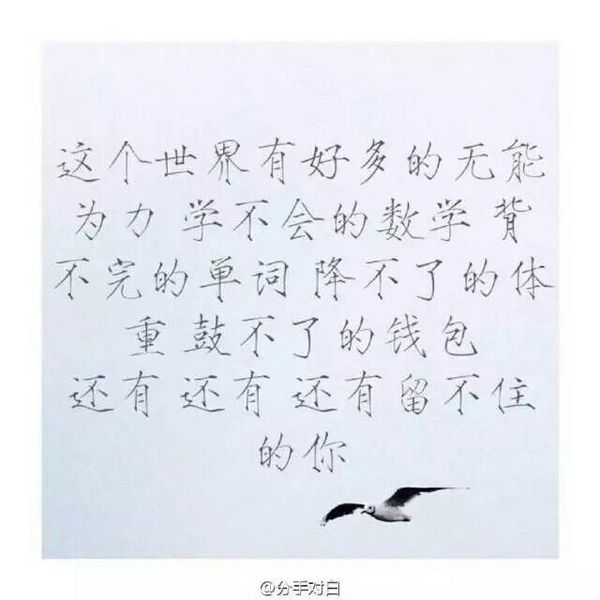 这个世界有好多的无能
为力 学不会的数学 背
不完的单词 降不了的体
重 鼓不了的钱包
还有 还有 还有留不住
的你
@分手对白